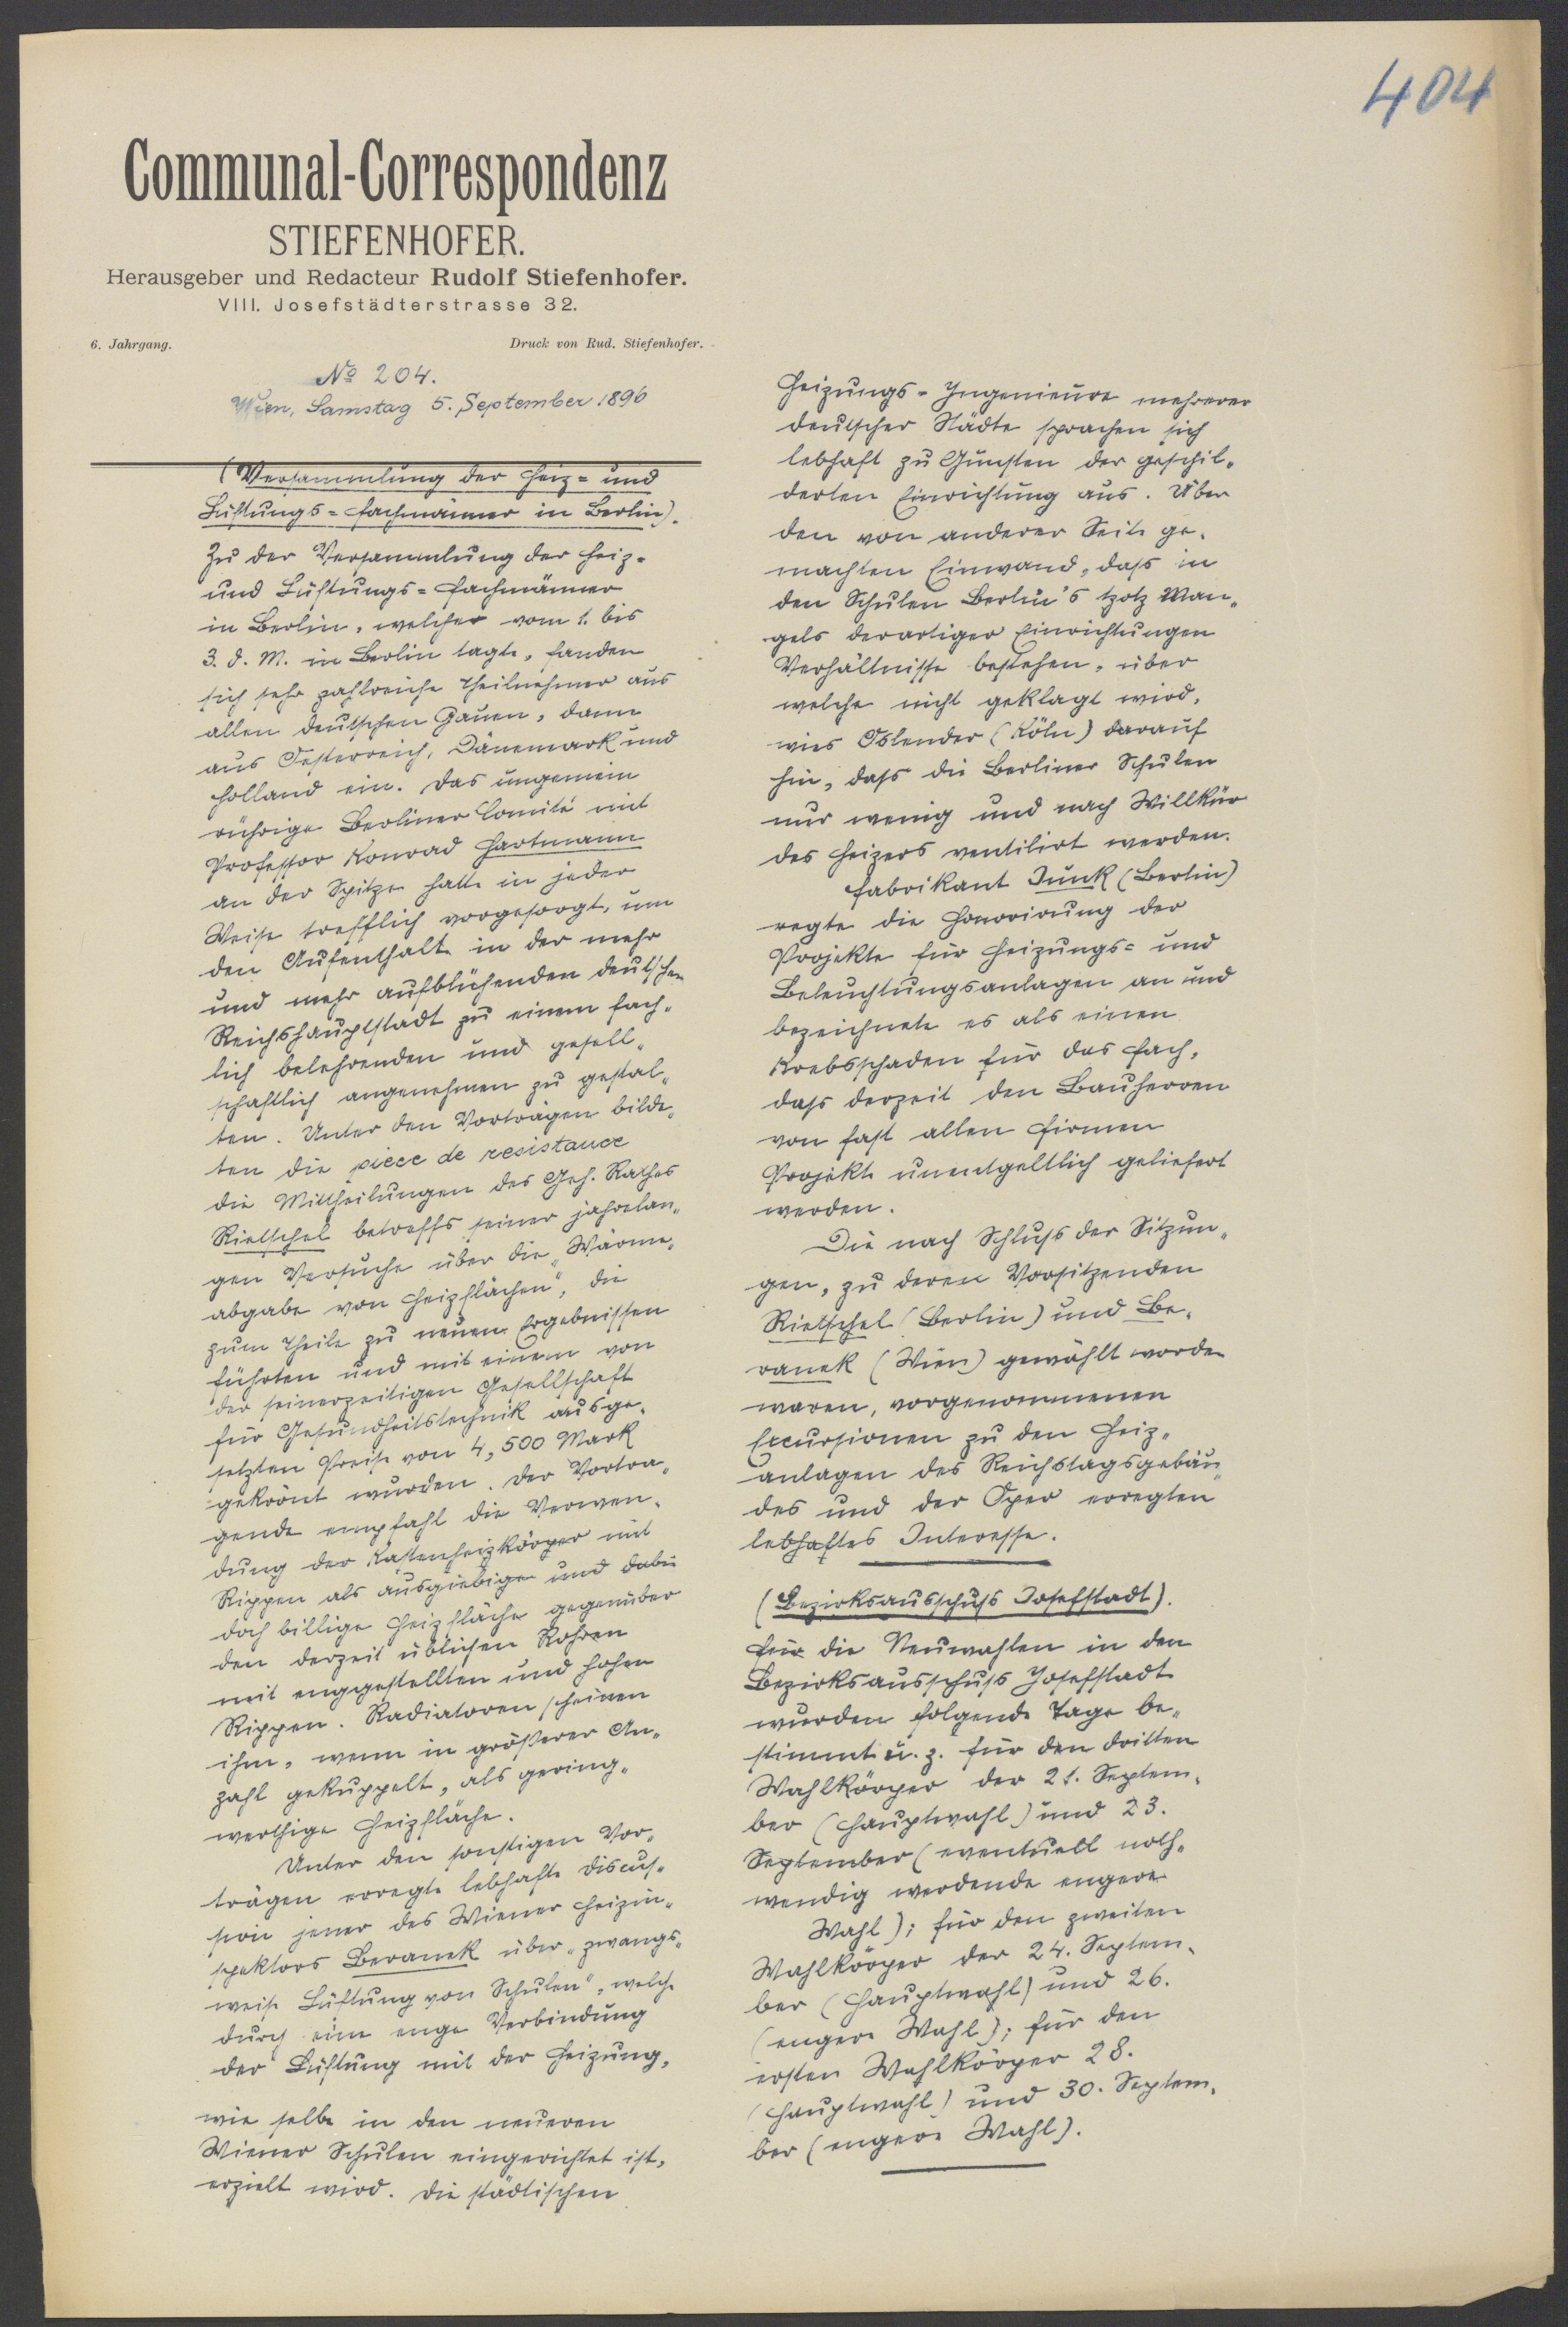 404
Communal-Correspondenz
STIEFENHOFER.
Herausgeber und Redacteur Rudolf Stiefenhofer.
VIII. Josefstädterstrasse 32.
6. Jahrgang.
Druck von Rud. Stiefenhofer.
No 204.
Wien, Samstag 5. September 1896
(Versammlung der Heiz- und
Lüftungs-Fachmänner in Berlin).
Zu der Versammlung der Heiz-
und Lüftungs-Fachmänner
in Berlin, welcher vom 1. bis
3. d. M. in Berlin tagte, fanden
sich sehr zahlreiche Theilnehmer aus
allen deutschen Gauen, dann
aus Oesterreich, Dänemark und
Holland ein. Das ungemein
rührige Berliner Comité mit
Professor Konrad Hartmann
an der Spitze hatte in jeder
Weise trefflich vorgesorgt, um
den Aufenthalt in der mehr
und mehr aufblühenden deutschen
Reichshauptstadt zu einem fach-
lich belehrenden und gesell-
schaftlich angenehmen zu gestal-
ten. Unter den Vorträgen bilde-
ten die piece de resistance
die Mittheilungen des Geh. Rathes
Rietschel betreffs seiner jahrelan-
gen Versuche über die „Wärme-
abgabe von Heizflächen", die
zum Theile zu neuen Ergebnissen
führten und mit einem von
der seinerzeitigen Gesellschaft
für Gesundheitstechnik ausge-
setzten Preise von 4,500 Mark
gekrönt wurden. Der Vortra-
gende empfahl die Verwen-
dung der Kastenheizkörper mit
Rippen als ausgiebige und dabei
doch billige Heizfläche gegenüber
den derzeit üblichen Rohren
mit enggestellten und hohen
Rippen. Radiatoren scheinen
ihm, wenn in größerer An-
zahl gekuppelt, als gering-
werthige Heizfläche.
Unter den sonstigen Vor-
trägen erregte lebhafte Discus-
sion jener des Wiener Heizin-
spektors Beranek über „zwangs-
weise Lüftung von Schulen", welche
durch eine enge Verbindung
der Lüftung mit der Heizung,
wie selbe in den neueren
Wiener Schulen eingerichtet ist,
erzielt wird. Die städtischen
Heizungs-Ingenieure mehrerer
deutscher Städte sprachen sich
lebhaft zu Gunsten der geschil-
derten Einrichtung aus. Über
den von anderer Seite ge-
machten Einwand, dass in
den Schulen Berlin's trotz Man-
gels derartiger Einrichtungen
Verhältnisse bestehen, über
welche nicht geklagt wird,
wies Oslender (Köln) darauf
hin, dass die Berliner Schulen
nur wenig und nach Willkür
des Heizers ventilirt werden.
Fabrikant Junk (Berlin)
regte die Honorirung der
Projekte für Heizungs- und
Beleuchtungsanlagen an und
bezeichnete es als einen
Krebsschaden für das Fach,
dass derzeit den Bauherren
von fast allen Firmen
Projekte unentgeltlich geliefert
werden.
Die nach Schluss der Sitzun-
gen, zu deren Vorsitzenden
Rietschel (Berlin) und Be-
ranek (Wien) gewählt worden
waren, vorgenommenen
Excursionen zu den Heiz-
anlagen des Reichstagsgebäu-
des und der Oper erregten
lebhaftes Interesse.
(Bezirksausschuss Josefstadt).
Für die Neuwahlen in den
Bezirksausschuss Josefstadt
wurden folgende Tage be-
stimmt u. z. für den dritten
Wahlkörper der 21. Septem-
ber (Hauptwahl) und 23.
September (eventuell noth-
wendig werdende engere
Wahl); für den zweiten
Wahlkörper der 24. Septem-
ber (Hauptwahl) und 26.
(engere Wahl); für den
ersten Wahlkörper 28.
(Hauptwahl) und 30. Septem-
ber (engere Wahl).